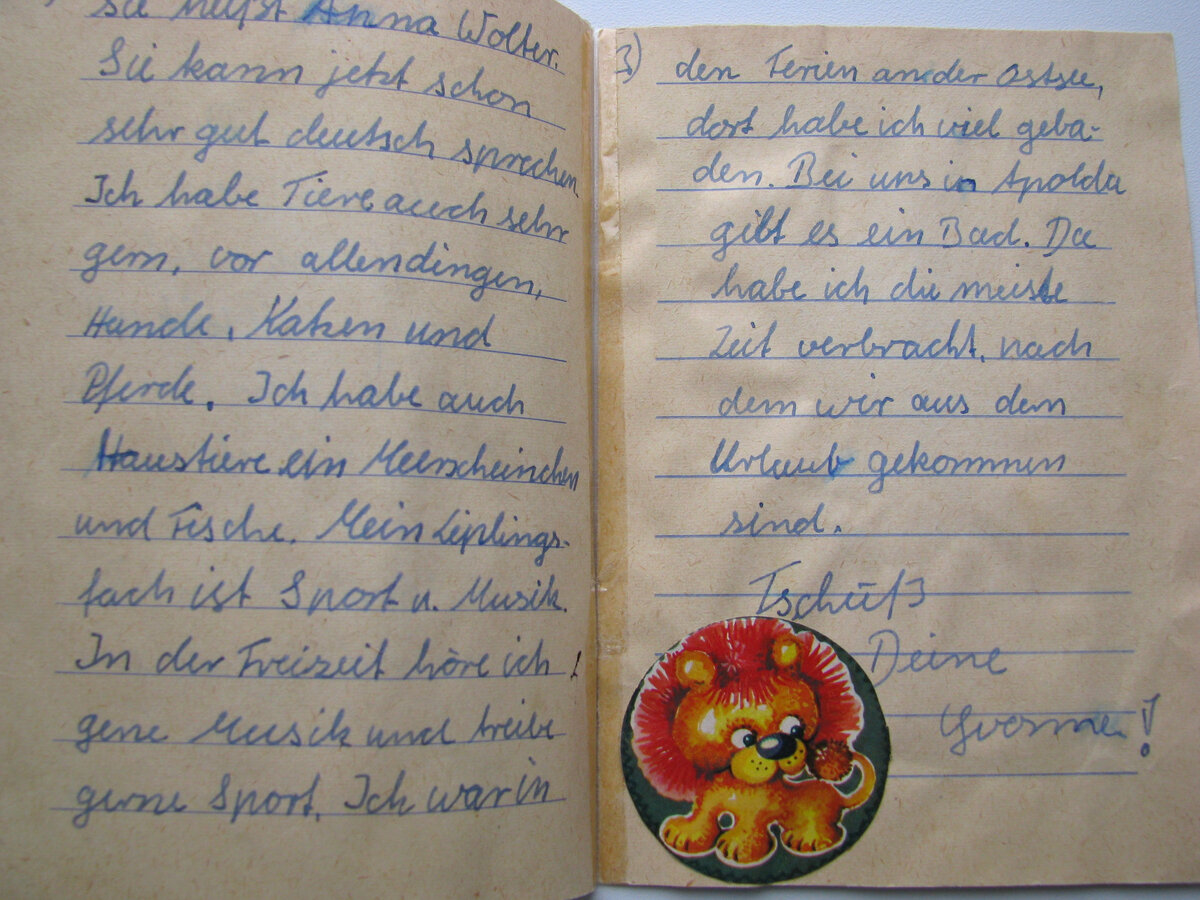 sie heißt Anna Wolter.
Sie kann jetzt schon
sehr gut deutsch sprechen
Ich habe Tiere auch sehr
gern, vor allendingen,
Hunde, Katzen und
Pferde. Ich habe auch
Haustiere ein Meerscheinchen
und Fische. Mein Lieplings-
fach ist Sport u. Musik.
In der Freizeit höre ich
gene Musik und treibe
gerne Sport. Ich war in
3) den Ferien an der Ostsee,
dort habe ich viel geba-
den. Bei uns in Apolda
gibt es ein Bad. Da
habe ich die meiste
Zeit verbracht, nach
dem wir aus dem
Urlaub gekommen
sind.
Tschüß
Deine
Yvonne!